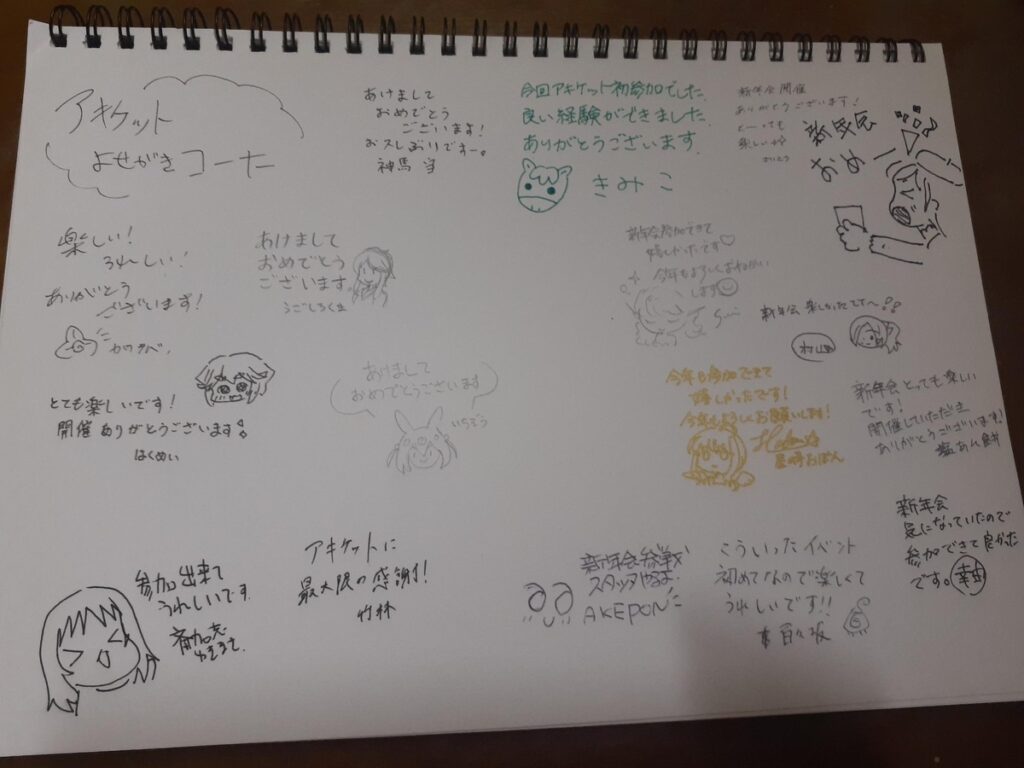 アキケット
よせがきコーナー
あけまして
おめでとう
ございます!
おスしおりですー。
神馬
今回アキケット初参加でした。
良い経験ができました。
ありがとうございます。
きみこ
新年会開催
ありがとうございます!
とーっても
楽しい
新年会
おめ
楽しい!
うれしい!
ありがとう
ございます!
あけまして
おめでとう
ございます
うごしろくま
新年会参加できて
嬉しかったです♡
今年もよろしくおねがい
します
新年会楽しかったでて〜
村山
とても楽しいです!
開催ありがとうございます
はくめい
あけまして
おめでとうございます
いちごう
今年も参加できて
嬉しかったです!
今年もよろしくお願いします!
星崎おぼん
新年会とっても楽しい
です!
開催していただき
ありがとうございます!
塩あん餅
参加出来て
うれしいです
アキケットに
最大限の感謝を!
竹林
新年会参戦
スタッフやるよ
AKEPON
こういったイベント
初めてなので楽しくて
うれしいです!!
新年会
気になっていたので
参加できて良かった
です。
幸